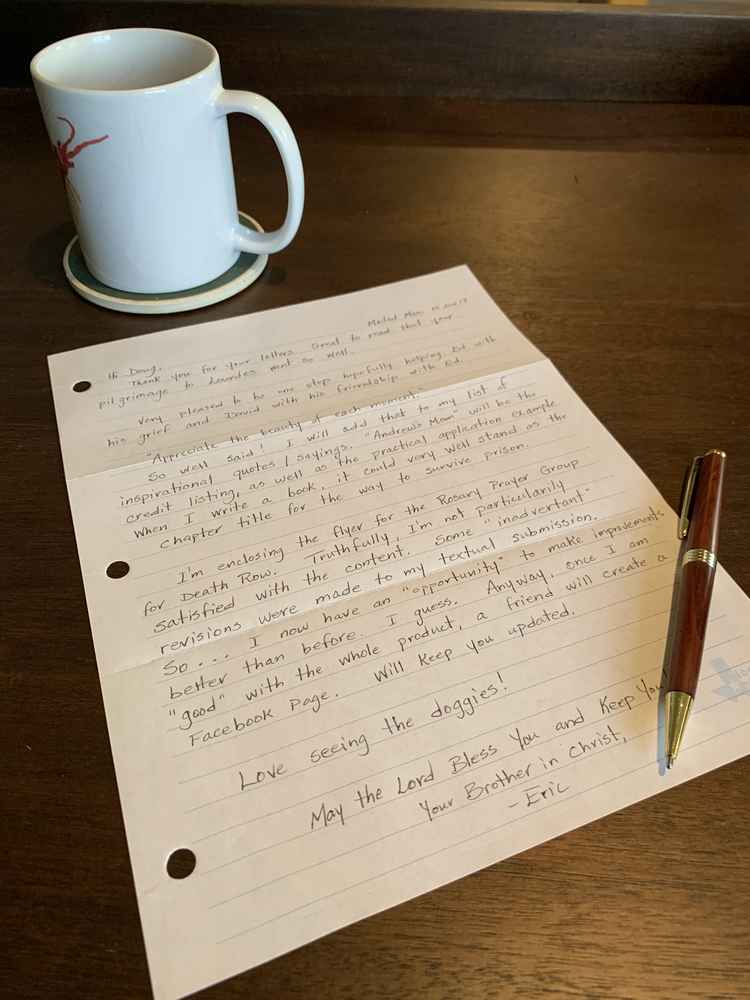 Mailed Mon
Hi Doug,
Thank you for your letters. Great to read that your
pilgrimage to Lourdes went so well.
Very pleased to be one step hopefully helping Ed with
his grief and David with his friendship with Ed.
"Appreciate the beauty of each moment."
So well said! I will add that to my list of
inspirational quotes/sayings. "Andrew's Mom" will be the
credit listing, as well as the practical application example
When I write a book, it could very well stand as the
chapter title for the way to survive prison.
I'm enclosing the flyer for the Rosary Prayer Group
for Death Row. Truthfully, I'm not particularily
satisfied with the content. Some "inadvertant"
revisions were made to my textual submission.
So... I now have an "opportunity" to make improvements
better than before. I guess. Anyway, once I am
"good" with the whole product, a friend will create a
Facebook Page. Will Keep you updated.
Love seeing the doggies!
May the Lord Bless You and Keep You!
Your Brother in Christ,
- Eric